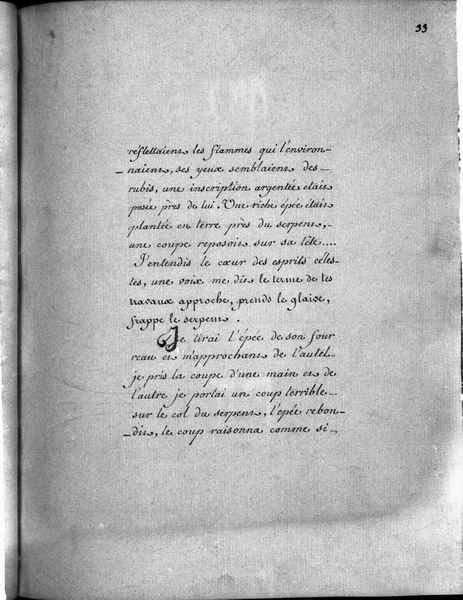 33
reflettaient les flammes qui l'environ-
naient, ses yeux semblaient des
rubis, une inscription argentée etait
posée près de lui. Une riche épée étais
plantée en terre près du serpent,
une coupe reposoit sur sa tête....
J'entendis le cœur des esprits céles-
tes, une voix me dit le terme de tes
travaux approche, prends le glaive,
frappe le serpent.
Je tirai l'épée de son four
reau et m'approchant de l'autel
je pris la coupe d'une main et de
l'autre je portai un coup terrible
sur le col du serpent, l'epée rebon-
dit, le coup raisonna comme si